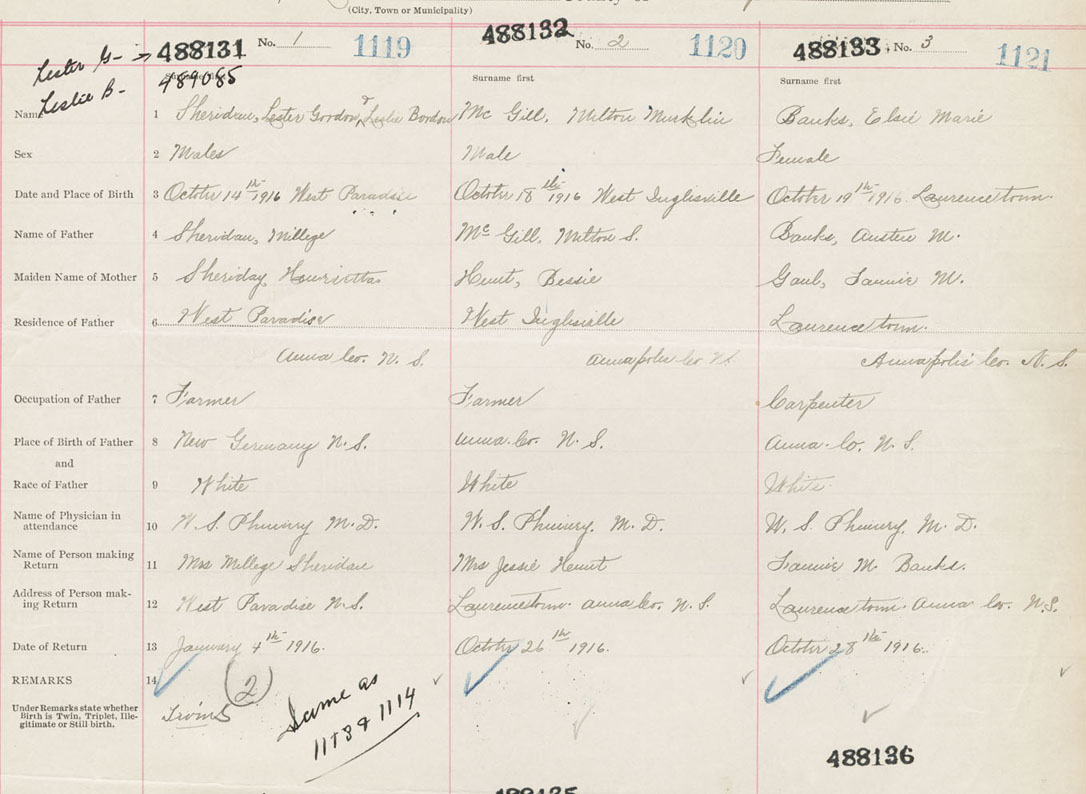 (City, Town or Municipality)
Lester G- → 488131 No. 1 1119 488132 No. 2 1120 488133 No. 3 1121
Leslie B- 489085
Surname first Surname first Surname first
Name 1 Sheridan, Lester Gordon, & Leslie Bordon Mc Gill, Milton Banks, Elsie Marie
Sex 2 Males Male Female
Date and Place of Birth 3 October 14th 1916 West Paradise October 18th 1916 West Inglisville October 19th 1916. Laurencetown.
Name of Father 4 Sheridan, Millege Mc Gill, Milton S. Banks, Austin M.
Maiden Name of Mother 5 Sheriday, Henrietta Hunt, Bessie Gaul, Fannie M.
Residence of Father 6 West Paradise West Inglisville Laurencetown.
Anna Co. N. S. Annapolis Co N.S. Annapolis Co. N. S.
Occupation of Father 7 Farmer Farmer Carpenter
Place of Birth of Father 8 New Germany N. S. Anna. Co. N. S. Anna. Co. N. S.
and
Race of Father 9 White White White.
Name of Physician in
attendance 10 W. S. Phinney M. D. W. S. Phinney. M. D. W. S. Phinney. M. D.
Name of Person making
Return 11 Mrs Millege Sheridan Mrs Jessie Hunt Fannie M. Banks.
Address of Person mak-
ing Return 12 West Paradise N. S. Laurencetown. Anna Co. N. S. Laurencetown. Anna Co. N. S.
Date of Return 13 January 4th 1916. October 26th 1916. October 28th 1916.
REMARKS 14 (2)
Under Remarks state whether
Birth is Twin, Triplet, Ille-
gitimate or Still birth.
Twins
Same as
1113 & 1114
488136
488135